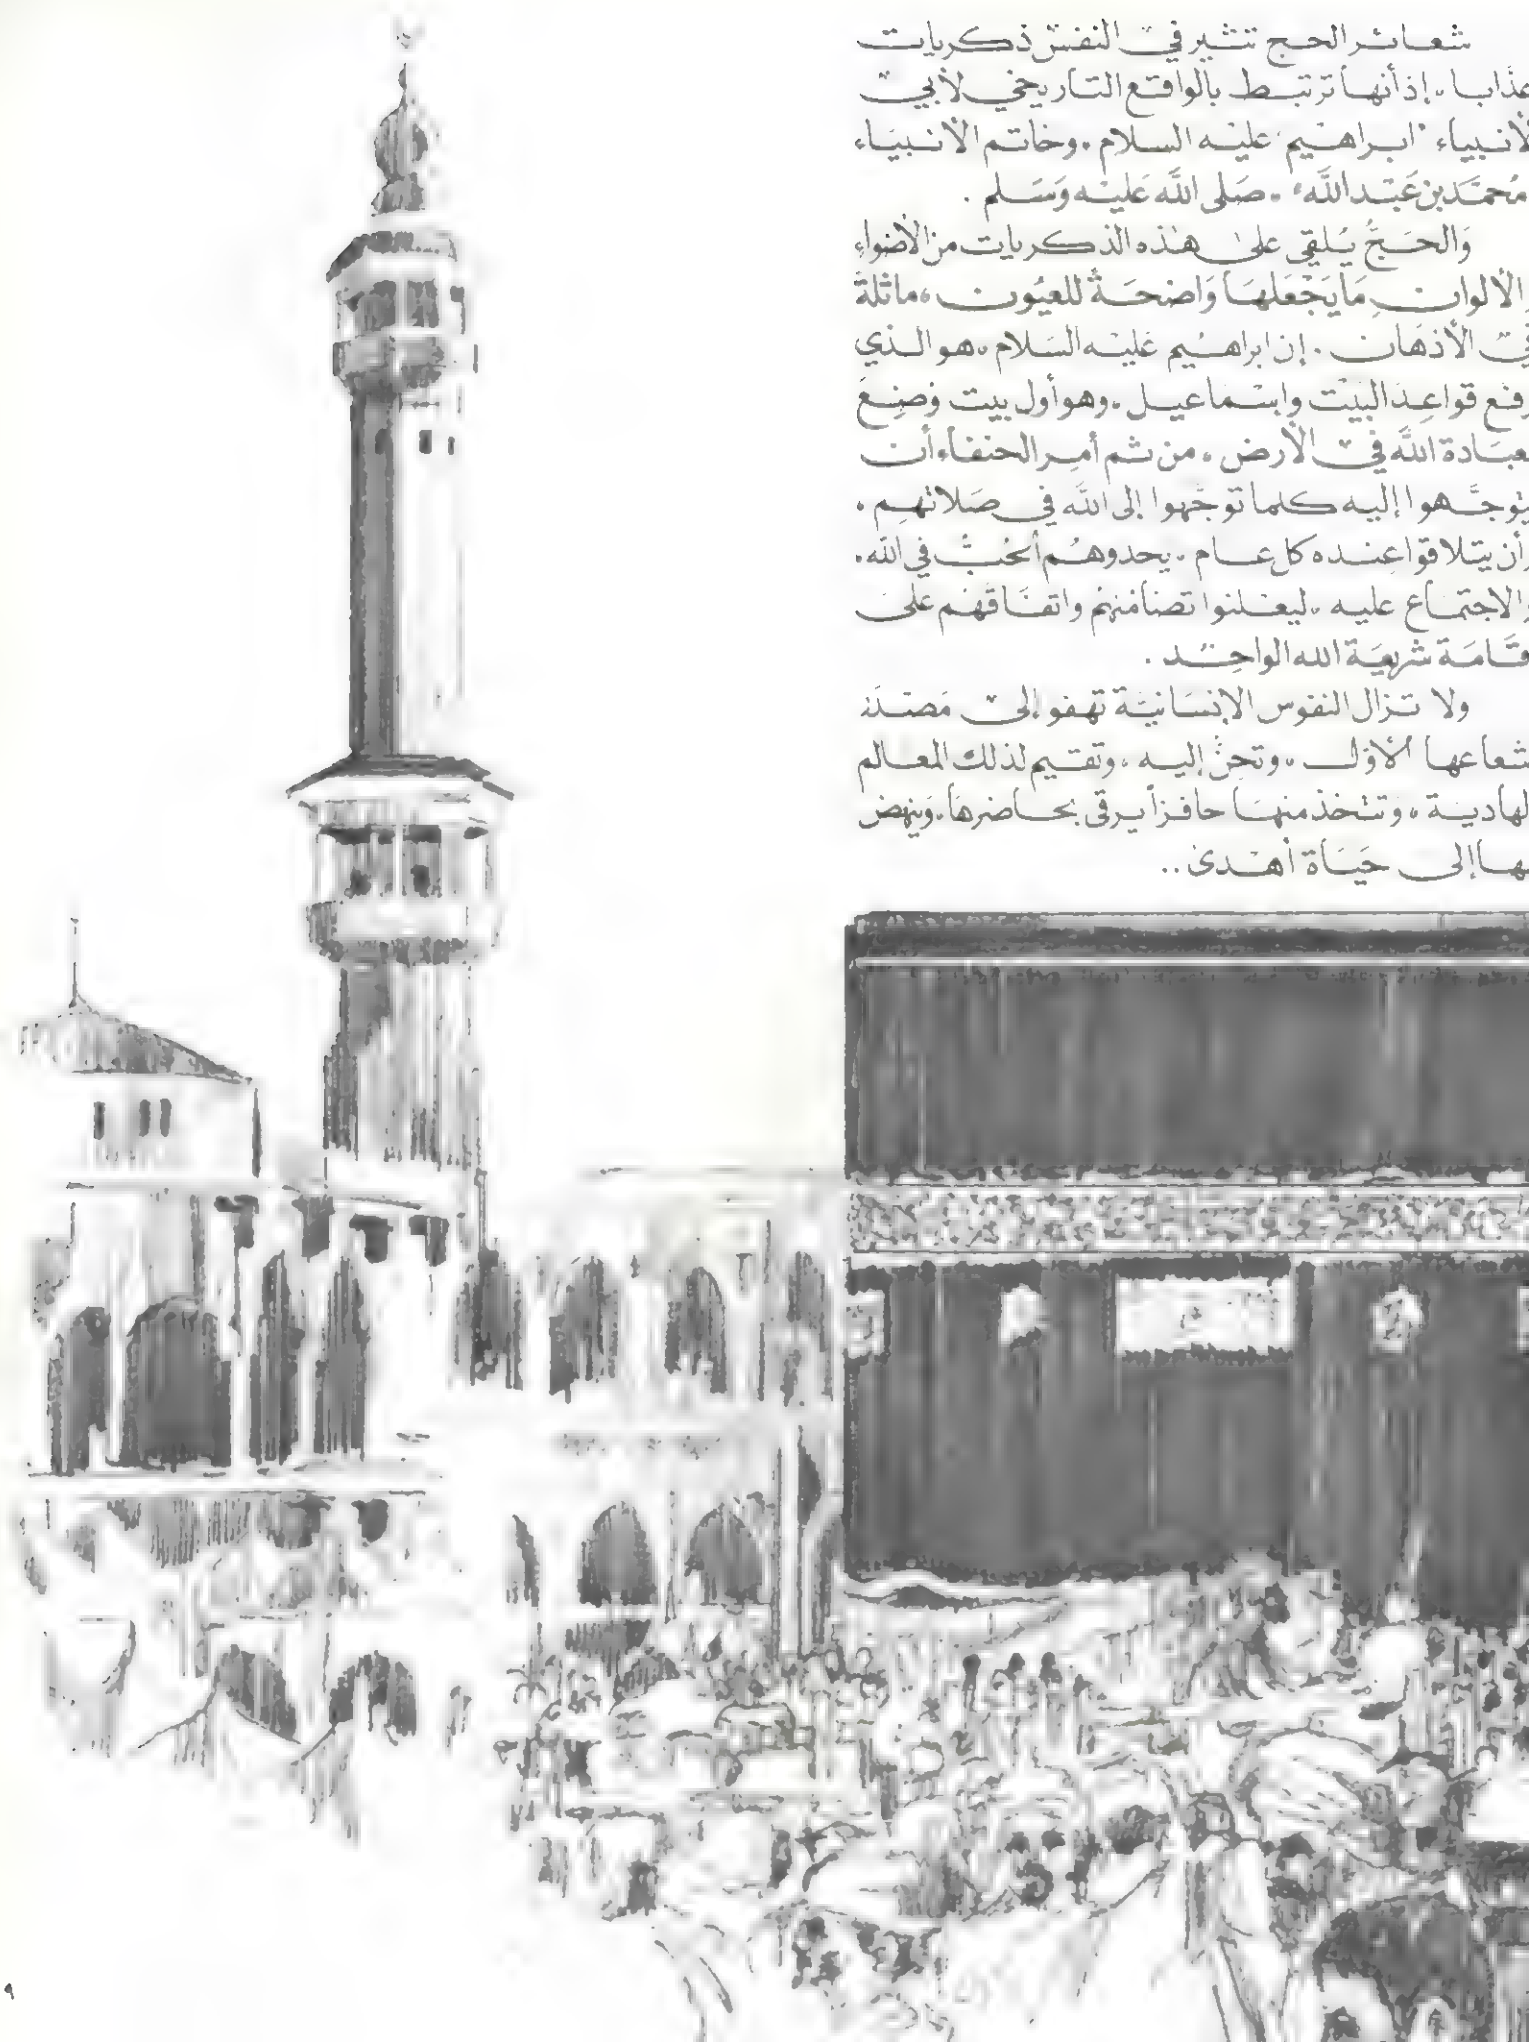 شعائر الحج تثير في النفس ذكريات
عذابا، إذ أنها ترتبط بالواقع التاريخي لأبي
الأنبياء "ابراهيم" عليه السلام، وخاتم الأنبياء
مُحمَّد بن عَبْد اللَّه، صَلى اللَّه عَليْه وَسَلم.
وَالحَجُّ يُلقي على هٰذه الذكريات من الأضواءِ
والألوانِ مَا يَجْعَلهَا وَاضحَةً للعيُون، ماثلةً
في الأذهَان. إن ابراهيم عليه السَلام، هو الذي
رفع قواعِدَ البيْت وابْسماعيل، وهو أول بيت وُضِعَ
لعبَادة اللَّه في الأرض، من ثم أمِر الحنفاء أن
يتوجَّهوا إليه كلما توجَّهوا إلى اللَّه في صَلاتهم،
وأن يتلاقوا عِنده كل عام، يحدوهُم الحُبُّ في الله،
والاجتمَاع عليه، ليعْلنوا تضامُنهُم واتفَاقهُم على
إقَامَة شريعَة الله الواحِد.
ولا تزال النفوس الإنسَانيَّة تهفو إلى مَصْدَر
شعاعها الأوَّل، وتحِنُّ إليه، وتقيم لذلك المعالم
الهادية، وتتخذ منهَا حافزاً يرقى بحاضرهَا، وَينهض
بها إلى حَيَاة أهْدى..
٩